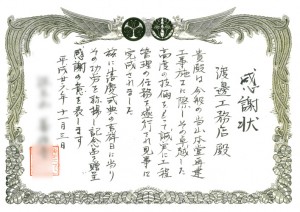 感謝状
渡邊工務店 殿
貴殿は今般の当山本堂再建
工事施工に際しその卓越した
高度の技倆をもって誠実に工程
管理の任務を遂行され見事に
完成されました
茲に落慶式典の吉辰に当り
その功労を称揚し記念品を贈呈
感謝の意を表します
平成廿六年十一月三日